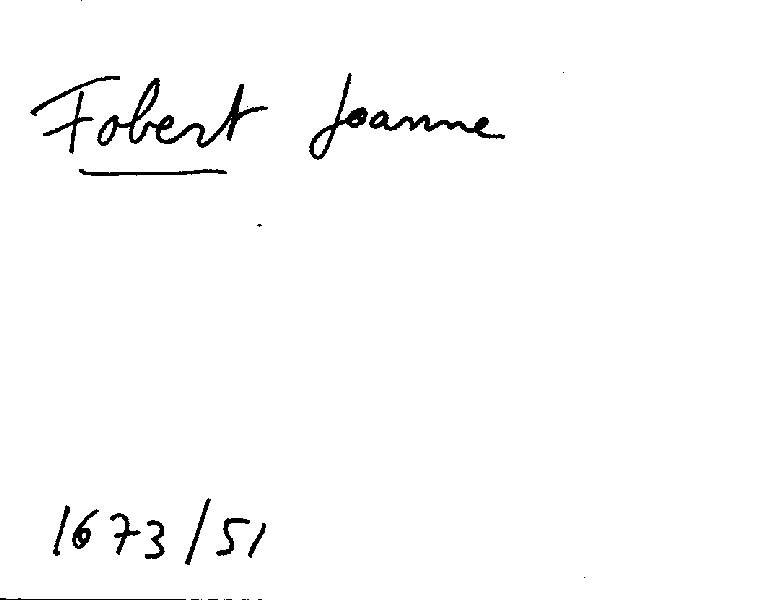 Fobert Joanne
1673/51